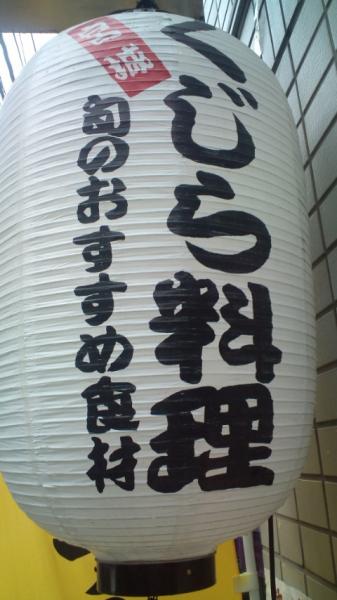 くじら料理
旬のおすすめ食材